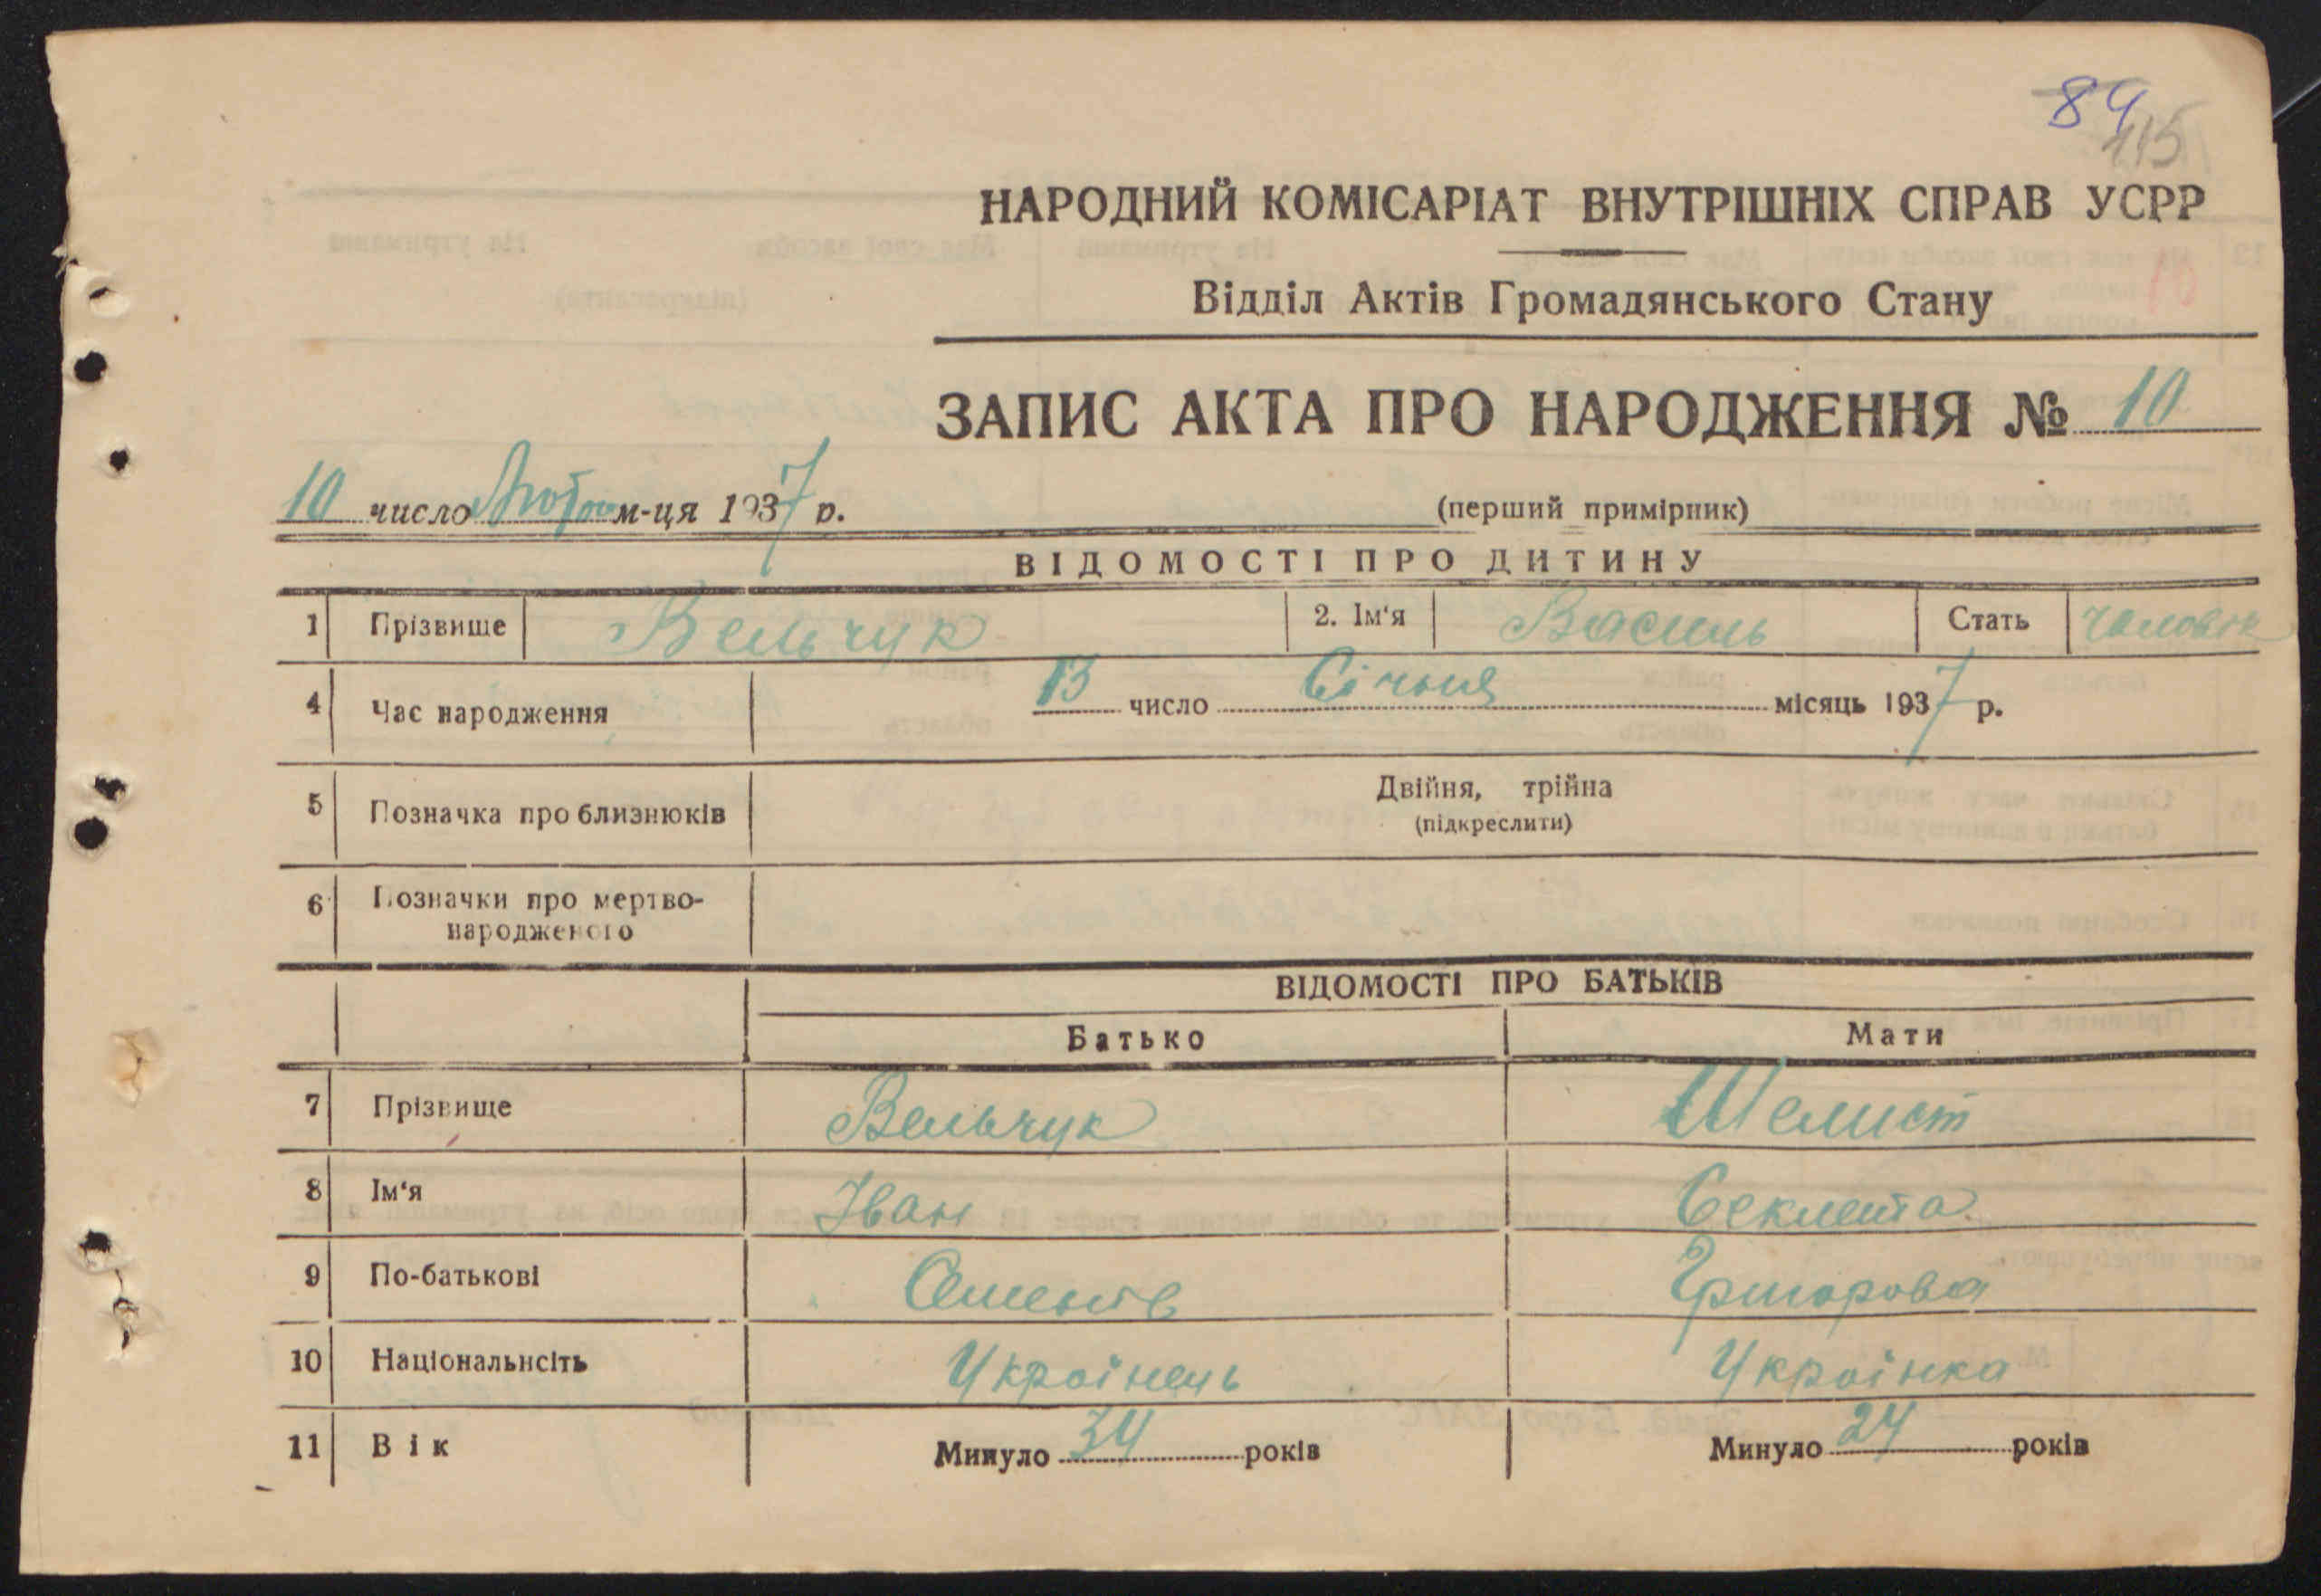 89
415
НАРОДНИЙ КОМІСАРІАТ ВНУТРІШНІХ СПРАВ УСРР
Відділ Актів Громадянського Стану
ЗАПИС АКТА ПРО НАРОДЖЕННЯ № 10
10 число Лютого м-ця 1937 р. (перший примірник)
ВІДОМОСТІ ПРО ДИТИНУ
1 Прізвище Вельчук 2. Ім'я Василь Стать чоловік
4 Час народження 13 число Січня місяць 1937 р.
5 Позначка про близнюків Двійня, трійна
(підкреслити)
6 Позначки про мертво-
народженого
ВІДОМОСТІ ПРО БАТЬКІВ
Батько Мати
7 Прізвище Вельчук Шелист
8 Ім'я Іван Секлета
9 По-батькові Семенів Григорова
10 Національнсіть Українець Українка
11 Вік Минуло 34 років Минуло 24 років